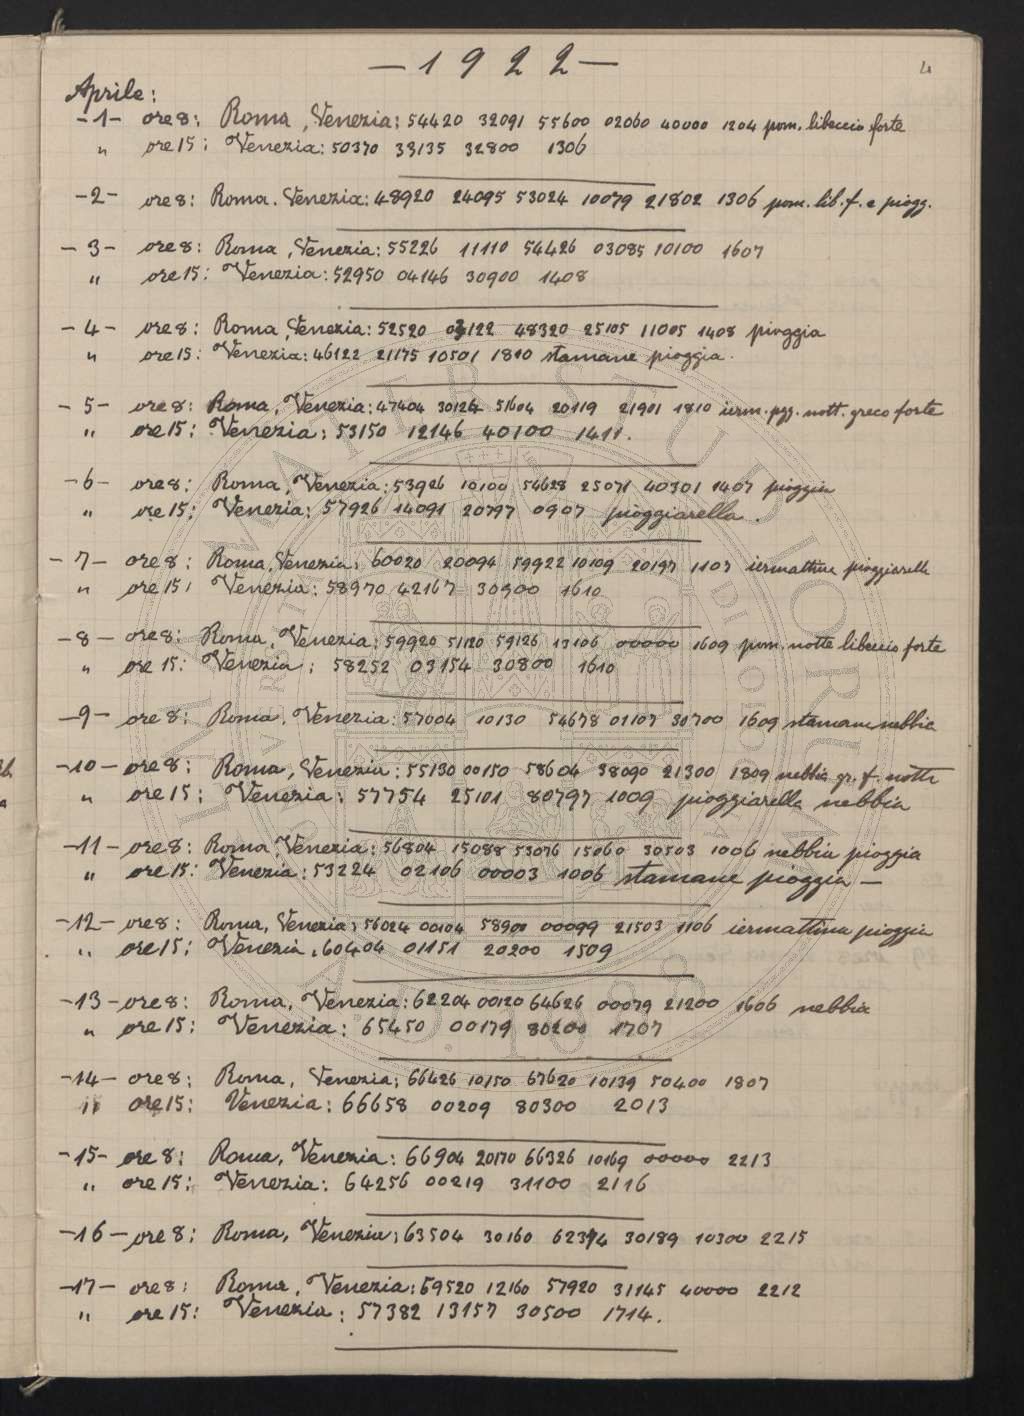 - 1 9 2 2 -
4
Aprile:
-1- ore 8: Roma, Venezia: 54420 32091 55600 02060 40000 1204 pom. libeccio forte
" ore 15: Venezia: 50370 33135 32800 1306
-2- ore 8: Roma. Venezia: 48920 24095 53024 10079 21802 1306 pom. lib. f. e piogg.
-3- ore 8: Roma, Venezia: 55226 11110 54426 03085 10100 1607
" ore 15: Venezia: 52950 04146 30900 1408
-4- ore 8: Roma, Venezia: 52520 03122 48320 25105 11005 1408 pioggia
" ore 15: Venezia: 46122 21175 10501 1810 stamane pioggia.
-5- ore 8: Roma, Venezia: 47404 30124 51604 20119 21901 1810 ierm. pgg. nott. greco forte
" ore 15: Venezia: 53150 12146 40100 1411.
-6- ore 8: Roma, Venezia: 53926 10100 54628 25071 40301 1407 pioggia
" ore 15: Venezia: 57926 14091 20797 0907 pioggiarella.
-7- ore 8: Roma, Venezia: 60020 20094 59922 10109 20197 1107 iermattina pioggiarella
" ore 15: Venezia: 58970 42167 30900 1610
-8- ore 8: Roma, Venezia: 59920 51120 59126 13106 00000 1609 pom. notte libeccio forte
" ore 15: Venezia: 58252 03154 30800 1610
-9- ore 8: Roma, Venezia: 57004 10130 54678 01107 30700 1609 stamane nebbia
-10- ore 8: Roma, Venezia: 55130 00150 58604 38090 21300 1809 nebbia gr. f. notte
" ore 15: Venezia: 57754 25101 80797 1009 pioggiarella nebbia
-11- ore 8: Roma, Venezia: 56804 15088 53076 15060 30503 1006 nebbia pioggia
" ore 15: Venezia: 53224 02106 00003 1006 stamane pioggia -
-12- ore 8: Roma, Venezia: 56024 00104 58900 00099 21503 1106 iermattina pioggia
" ore 15: Venezia: 60404 01151 20200 1509
-13- ore 8: Roma, Venezia: 62204 00120 64626 00079 21200 1606 nebbia
" ore 15: Venezia: 65450 00179 80200 1707
-14- ore 8: Roma, Venezia: 66426 10150 67620 10139 50400 1807
" ore 15: Venezia: 66658 00209 80300 2013
-15- ore 8: Roma, Venezia: 66904 20170 66326 10169 00000 2213
" ore 15: Venezia: 64256 00219 31100 2116
-16- ore 8: Roma, Venezia: 63504 30160 62374 30189 10300 2215
-17- ore 8: Roma, Venezia: 59520 12160 57920 31145 40000 2212
" ore 15: Venezia: 57382 13157 30500 1714.